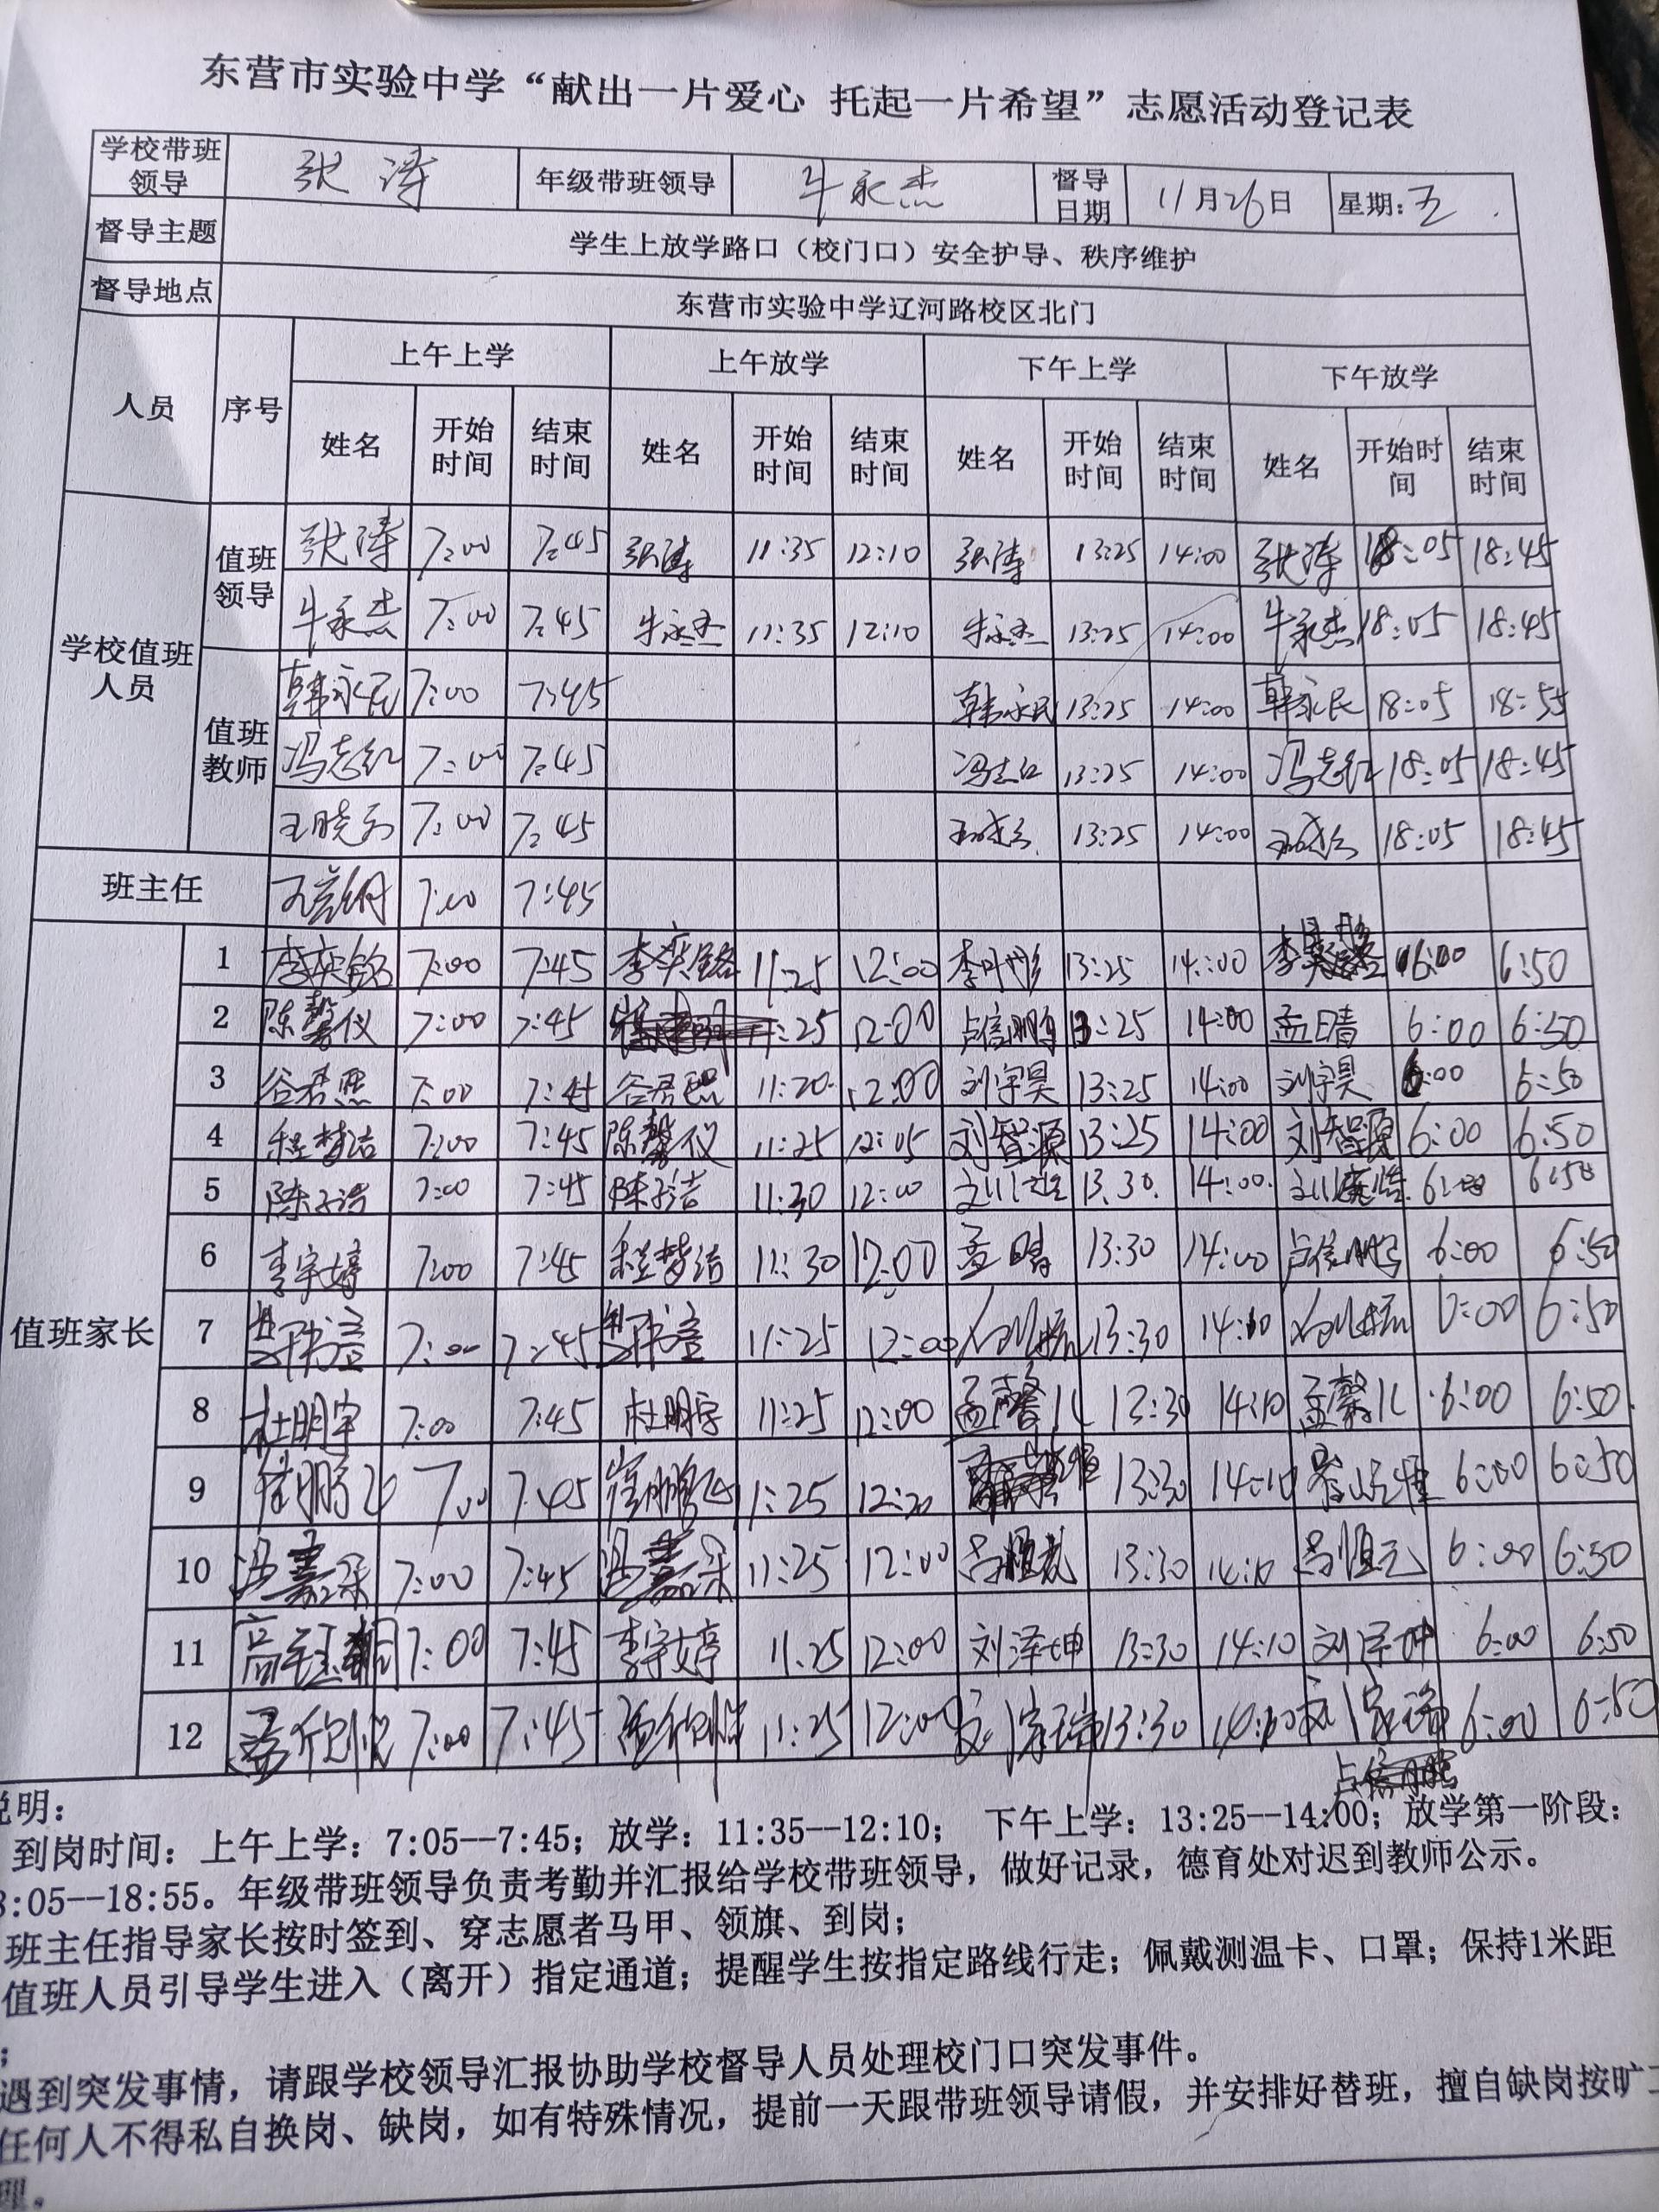 东营市实验中学“献出一片爱心 托起一片希望”志愿活动登记表
学校带班领导 张涛 年级带班领导 牛永杰 督导日期 11月26日 星期:五
督导主题 学生上放学路口（校门口）安全护导、秩序维护
督导地点 东营市实验中学辽河路校区北门
人员 序号 上午上学 上午放学 下午上学 下午放学
姓名 开始时间 结束时间 姓名 开始时间 结束时间 姓名 开始时间 结束时间 姓名 开始时间 结束时间
学校值班人员
值班领导 张涛 7:00 7:45 张涛 11:35 12:10 张涛 13:25 14:00 张涛 18:05 18:45
牛永杰 7:00 7:45 牛永杰 11:35 12:10 牛永杰 13:25 14:00 牛永杰 18:05 18:45
值班教师 韩永民 7:00 7:45 韩永民 13:25 14:00 韩永民 18:05 18:55
冯志红 7:00 7:45 冯志红 13:25 14:00 冯志红 18:05 18:45
7:00 7:45 13:25 14:00 18:05 18:45
班主任 7:00 7:45
值班家长
1 李奕铭 7:00 7:45 李奕铭 11:25 12:00 13:25 14:00 6:00 6:50
2 陈馨仪 7:00 7:45 11:25 12:00 卢信鹏 13:25 14:00 孟晴 6:00 6:50
3 谷君熙 7:00 7:45 谷君熙 11:20 12:00 刘宇昊 13:25 14:00 刘宇昊 6:00 6:50
4 程梦洁 7:00 7:45 陈馨仪 11:25 12:05 刘智源 13:25 14:00 刘智源 6:00 6:50
5 陈子洁 7:00 7:45 陈子洁 11:30 12:00 13:30 14:00 6:00 6:50
6 李宇婷 7:00 7:45 程梦洁 11:30 12:00 孟晴 13:30 14:00 卢信鹏 6:00 6:50
7 7:00 7:45 11:25 12:00 13:30 14:10 6:00 6:50
8 杜明宇 7:00 7:45 杜明宇 11:25 12:00 孟馨儿 13:30 14:10 孟馨儿 6:00 6:50
9 崔鹏飞 7:00 7:45 崔鹏飞 11:25 12:20 13:30 14:10 6:00 6:50
10 冯嘉琛 7:00 7:45 冯嘉琛 11:25 12:00 吕恒元 13:30 14:10 吕恒元 6:00 6:50
11 7:00 7:45 李宇婷 11:25 12:00 刘泽坤 13:30 14:10 刘泽坤 6:00 6:50
12 7:00 7:45 11:25 12:00 13:30 14:00 6:00 6:50
说明:
到岗时间：上午上学：7:05--7:45；放学：11:35--12:10； 下午上学：13:25--14:00；放学第一阶段：
8:05--18:55。年级带班领导负责考勤并汇报给学校带班领导，做好记录，德育处对迟到教师公示。
班主任指导家长按时签到、穿志愿者马甲、领旗、到岗；
值班人员引导学生进入（离开）指定通道；提醒学生按指定路线行走；佩戴测温卡、口罩；保持1米距
；
遇到突发事情，请跟学校领导汇报协助学校督导人员处理校门口突发事件。
任何人不得私自换岗、缺岗，如有特殊情况，提前一天跟带班领导请假，并安排好替班，擅自缺岗按旷
理。